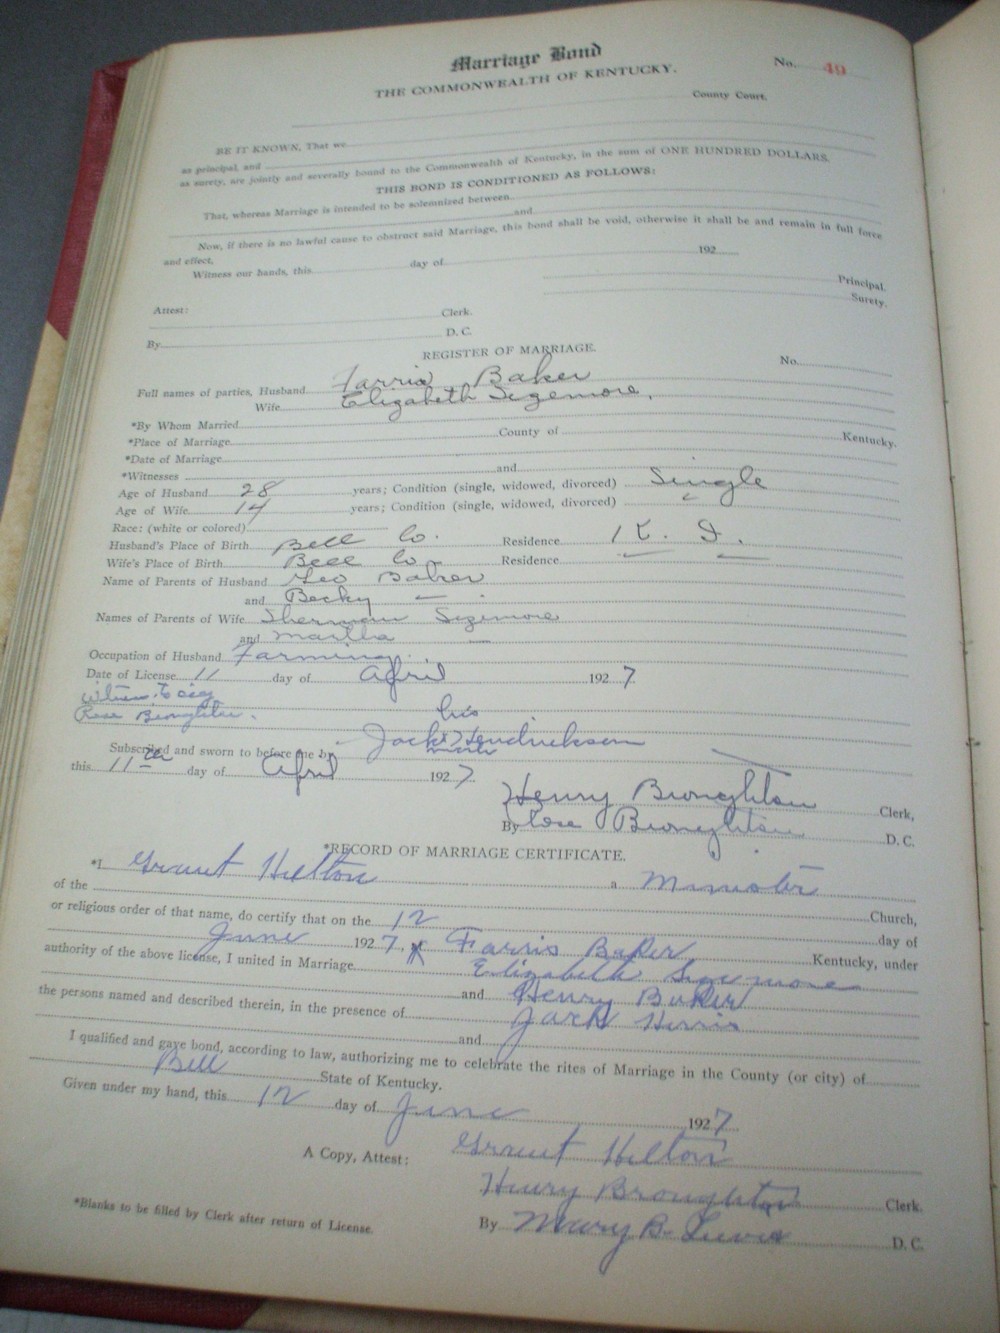 Marriage Bond
No. 49
THE COMMONWEALTH OF KENTUCKY.
County Court.
BE IT KNOWN, That we
as principal, and
as surety, are jointly and severally bound to the Commonwealth of Kentucky, in the sum of ONE HUNDRED DOLLARS.
THIS BOND IS CONDITIONED AS FOLLOWS:
That, whereas Marriage is intended to be solemnized between
and
Now, if there is no lawful cause to obstruct said Marriage, this bond shall be void, otherwise it shall be and remain in full force
and effect.
Witness our hands, this day of 192
Principal.
Surety.
Attest: Clerk.
By D. C.
REGISTER OF MARRIAGE.
No.
Full names of parties, Husband Farris Baker
Wife Elizabeth Sizemore,
*By Whom Married
*Place of Marriage County of Kentucky.
*Date of Marriage
*Witnesses and
Age of Husband 28 years; Condition (single, widowed, divorced) Single
Age of Wife 14 years; Condition (single, widowed, divorced)
Race: (white or colored)
Husband's Place of Birth Bell Co. Residence
Wife's Place of Birth Bell Co Residence
Name of Parents of Husband Geo Baker
and Becky
Names of Parents of Wife Sherman Sizemore
and Martha
Occupation of Husband Farming
Date of License 11 day of April 1927
Witness to sig
Rose Broughton.
his
Jack Hendrickson
mark
Subscribed and sworn to before me by
this 11th day of April 1927
Henry Broughton Clerk,
By Rose Broughton D. C.
*RECORD OF MARRIAGE CERTIFICATE.
*I Grant Helton a Minister
of the Church,
or religious order of that name, do certify that on the 12 day of
June 1927, Kentucky, under
authority of the above license, I united in Marriage Farris Baker
and Elizabeth Sizemore
the persons named and described therein, in the presence of Henry Baker
and Jack
I qualified and gave bond, according to law, authorizing me to celebrate the rites of Marriage in the County (or city) of
Bell State of Kentucky.
Given under my hand, this 12 day of June 1927
Grant Helton
A Copy, Attest:
Henry Broughton Clerk.
By Mary B. Lewis D. C.
*Blanks to be filled by Clerk after return of License.